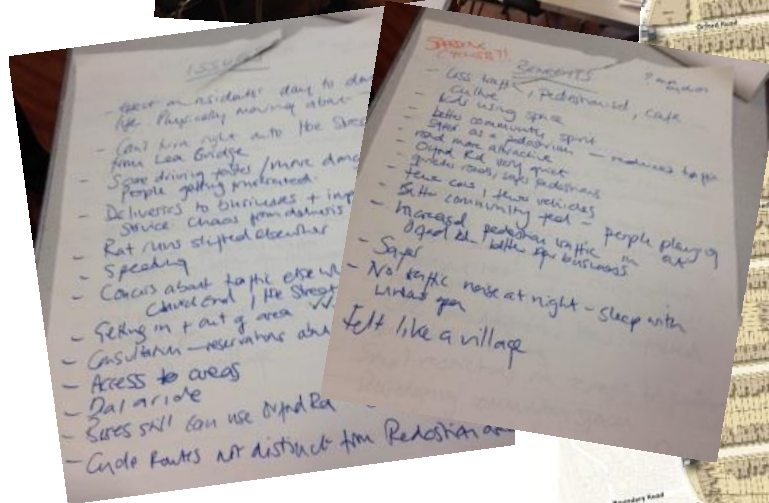 ISSUES
on residents' day to day
life. Physically moving about
- Can't turn right into Hoe Street
from Lea Bridge
- Some driving faster / more
People getting frustrated.
- Deliveries to business +
service. Chaos from deliveries
- Rat runs shifted elsewhere
- Speeding
- Concerns about traffic
Church End / Hoe Street
- Getting in + out of area
- Consultation - reservations
- Access to areas
- Dial a ride
- Buses still can use Orford Rd
- Cycle Routes not distinct from Pedestrian
SPEEDING
CYCLISTS?!
BENEFITS
- Less traffic, Pedestrianised, cafe
culture
- Kids using space
- better community spirit
- Safer as a pedestrian
- road more attractive
- Orford Rd very quiet
- quieter roads, safer pedestrians
- fewer cars / fewer vehicles
- Better community feel - people playing
out
- Increased pedestrian traffic in
Orford Rd - better for business
- Safer
- No traffic noise at night - sleep with
window open
Felt like a village
Orford Road
Boundary Road